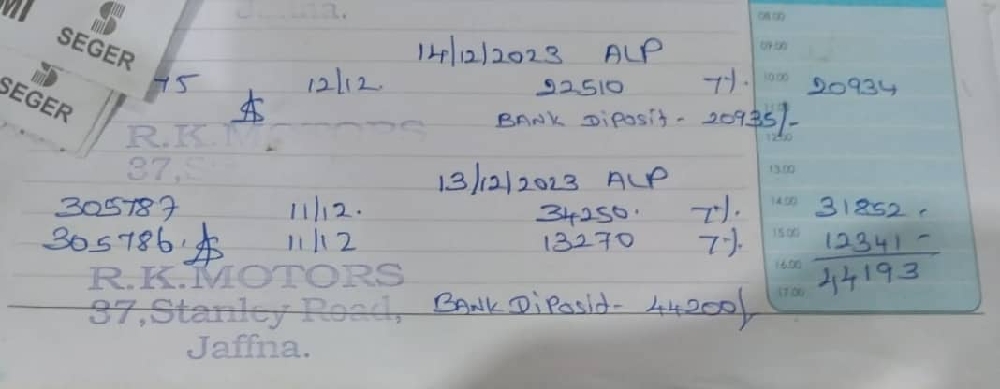 SEGER
SEGER
08:00
14/12/2023 ALP
09:00
75 12/12. 22510 7%. 10:00 20934
BANK Diposit - 20935/-
R.K.M OTORS
12:00
37,S
13:00
13/12/2023 ALP
305787 11/12. 34250. 7%. 14:00 31852.
305786. 11/12 13270 7%. 15:00 12341 -
R.K.MOTORS 16:00 44193
37,Stanley Road, BANK Diposit - 44200/ 17:00
Jaffna.